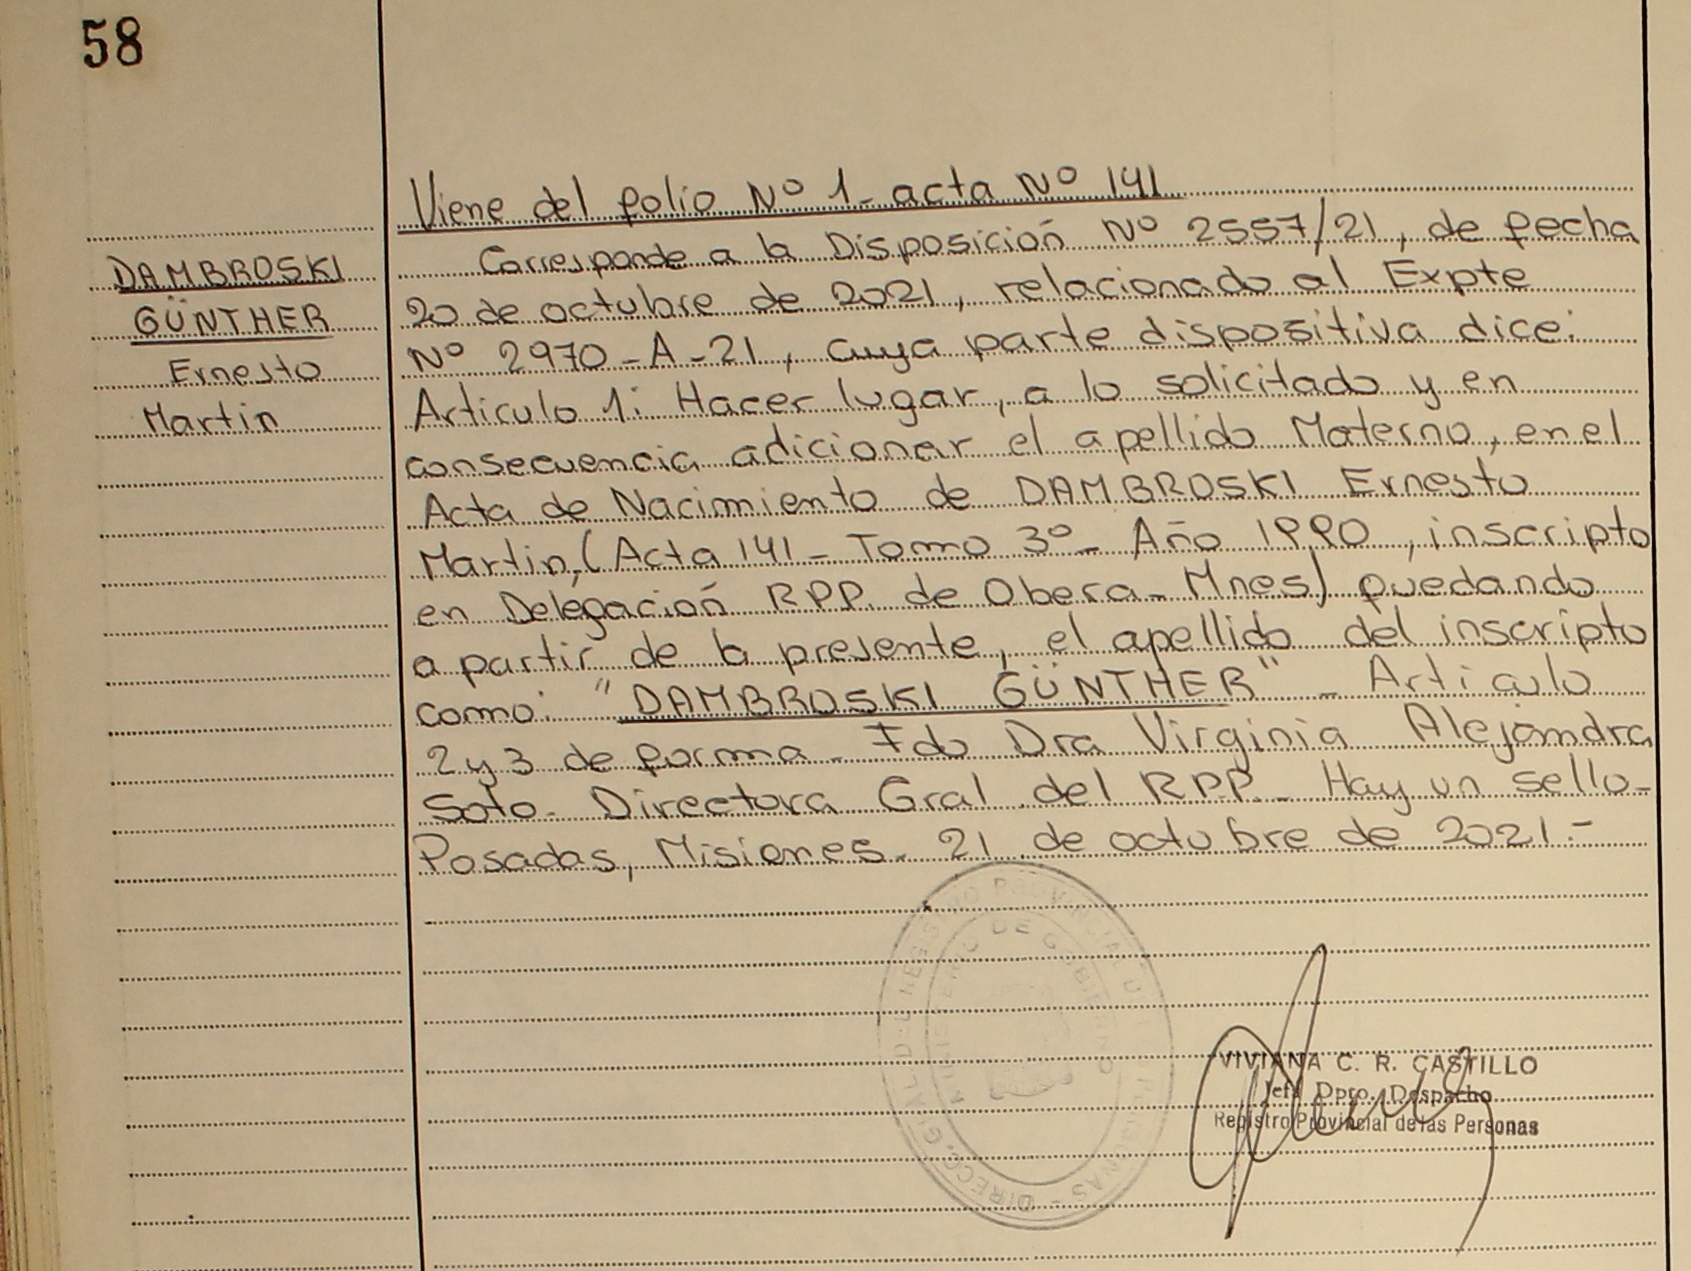 58
DAMBROSKI
GÜNTHER
Ernesto
Martin
Viene del folio Nº 1_ acta Nº 141
Corresponde a la Disposición Nº 2557/21, de fecha
20 de octubre de 2021, relacionado al Expte
Nº 2970-A-21, cuya parte dispositiva dice:
Articulo 1: Hacer lugar, a lo solicitado y en
consecuencia adicionar el apellido Materno, en el
Acta de Nacimiento de DAMBROSKI Ernesto
Martin, (Acta 141 - Tomo 3º - Año 1990, inscripto
en Delegación RPP. de Obera - Mnes) quedando
a partir de la presente, el apellido del inscripto
como: "DAMBROSKI GÜNTHER" - Articulo
2 y 3 de forma - Fdo Dra Virginia Alejandra
Soto - Directora Gral del RPP - Hay un sello -
Posadas, Misiones - 21 de octubre de 2021.-
DIRECC. GRAL DEL REGISTRO PROVINCIAL DE LAS PERSONAS -
MINISTERIO DE GOBIERNO
VIVIANA C. R. CASTILLO
Jefa Dpto. Despacho
Registro Provincial de las Personas